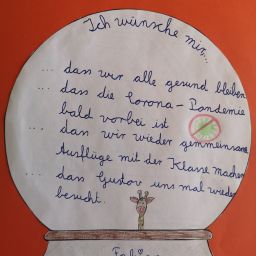 Ich wünsche mir...
... dass wir alle gesund bleiben
... dass die Corona-Pandemie
bald vorbei ist
... dass wir wieder gemmeinsame
Ausflüge mit der Klasse machen
... dass Gustav uns mal wieder
besucht.